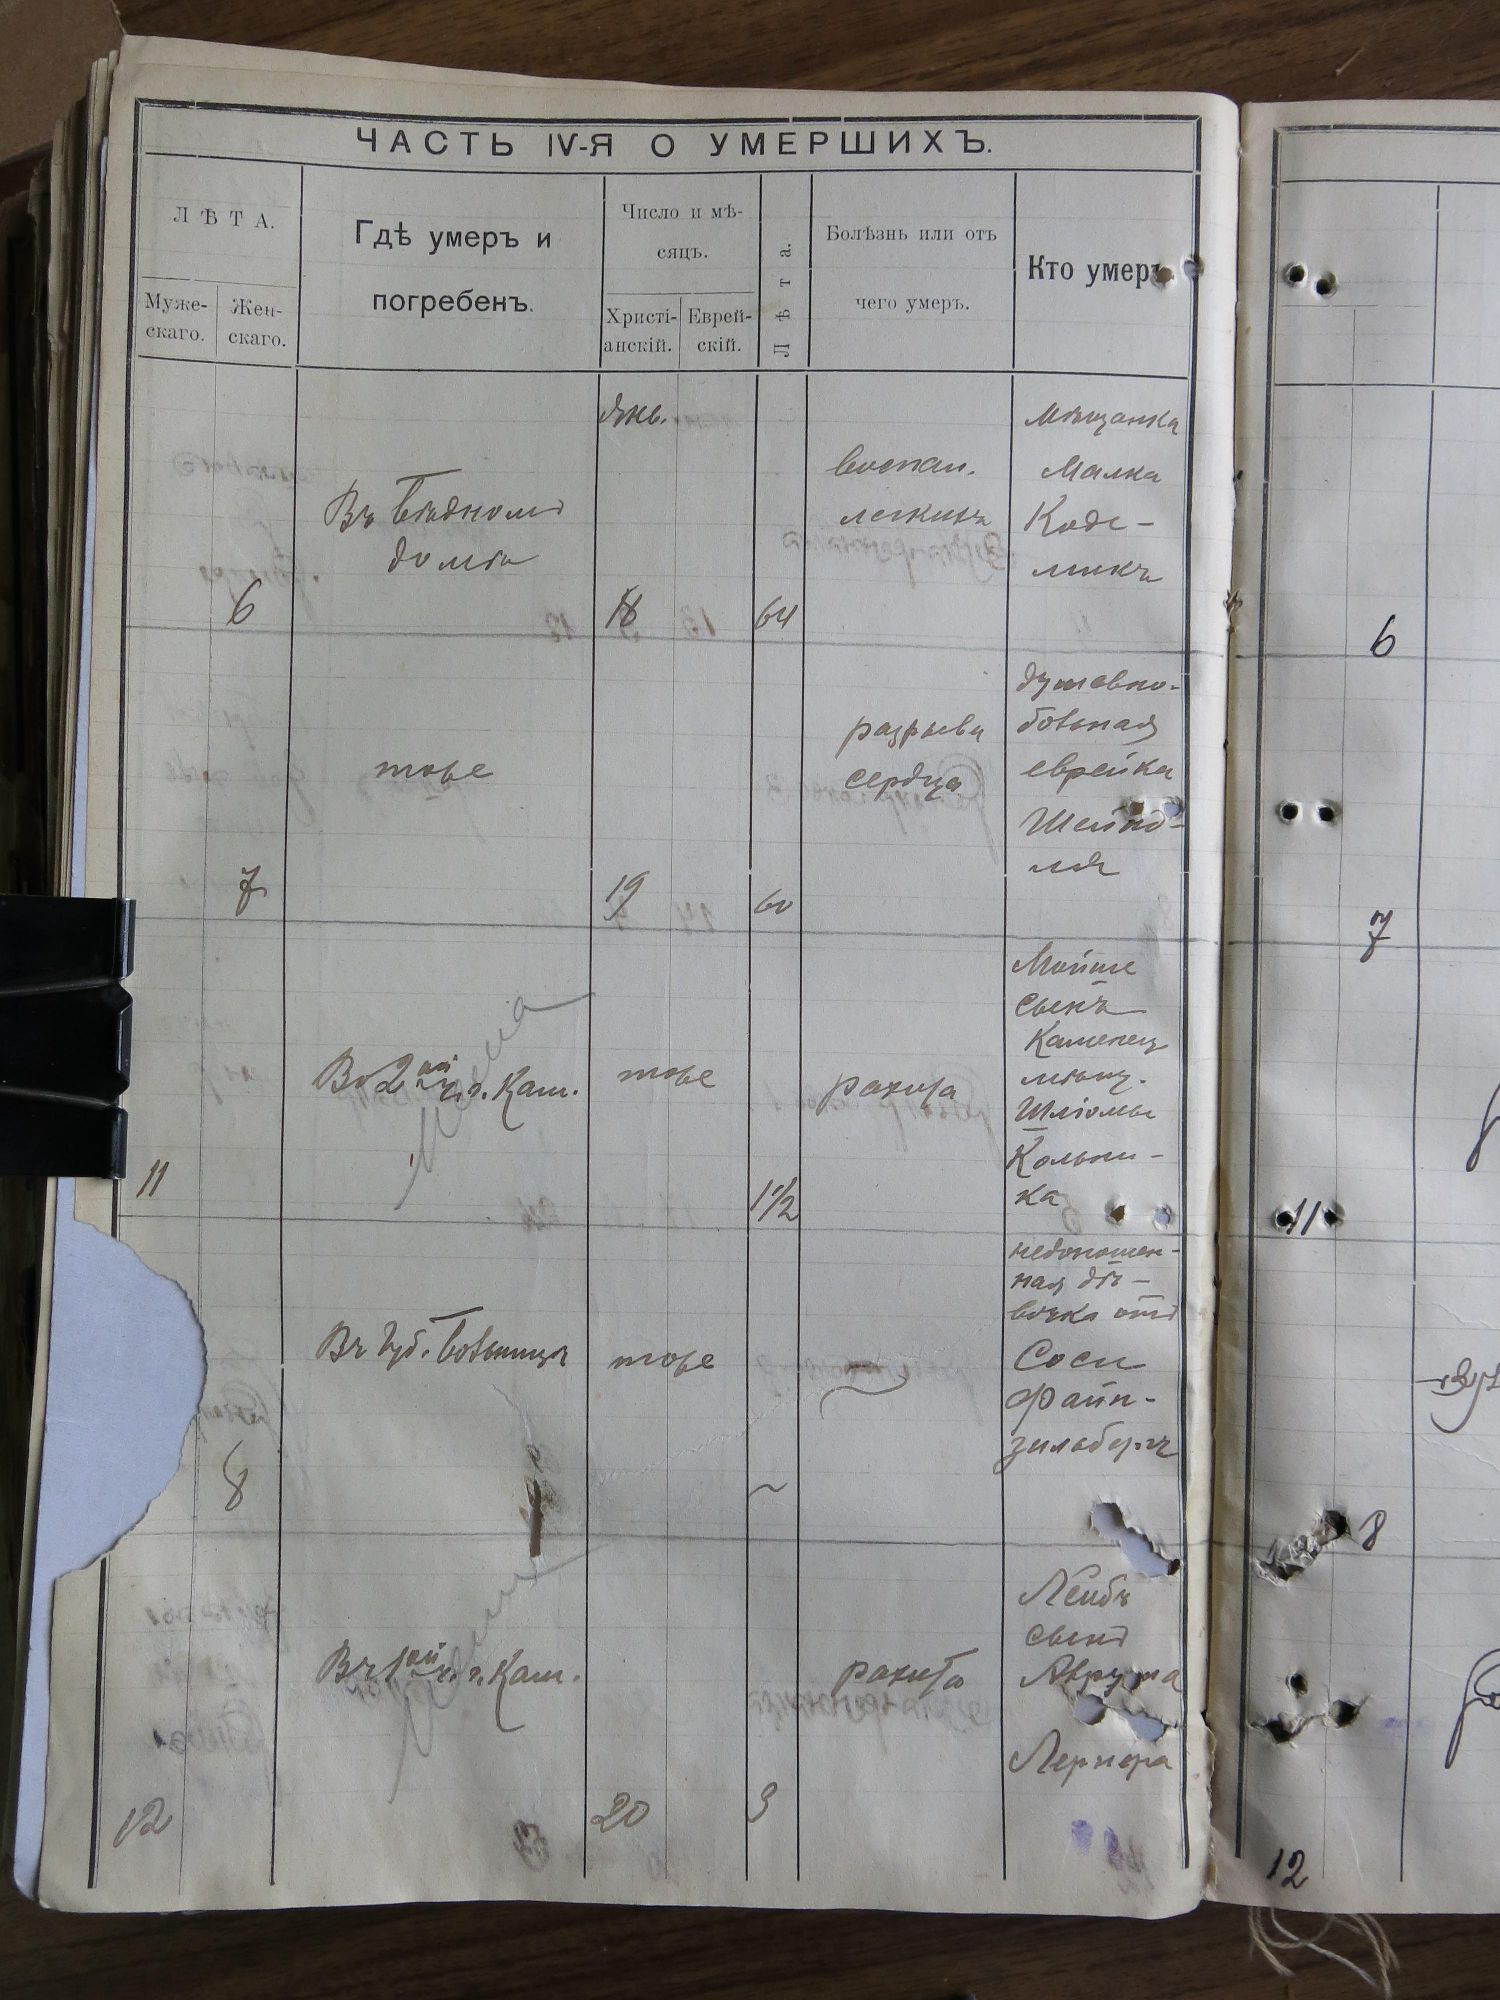 ЧАСТЬ IV-Я О УМЕРШИХЪ.
ЛѢТА.
Муже-
скаго.
Жен-
скаго.
Гдѣ умеръ и
погребенъ.
Число и мѣ-
сяцъ.
Христі-
анскій.
Еврей-
скій.
Лѣта.
Болѣзнь или отъ
чего умеръ.
Кто умеръ
6
Въ бѣдномъ
домѣ
Янв.
18
64
воспал.
легкихъ
мѣщанка
Малка
Коде-
6
7
тоже
19
60
разрывъ
сердца
душевно-
больная
еврейка
Шейнд-
ля
7
11
Во 2ой ч. г. Кам.
тоже
1 1/2
рахита
Мойше
сынъ
Каменец
мѣщ.
Шліомы
Кольни-
ка
11
8
Въ Губ. больницѣ
тоже
недоношен-
ная дѣ-
вочка отъ
Соси
Файн-
зильбергъ
8
12
Въ 1ой ч. г. Кам.
20
3
рахита
Лейбъ
сынъ
Лернера
12